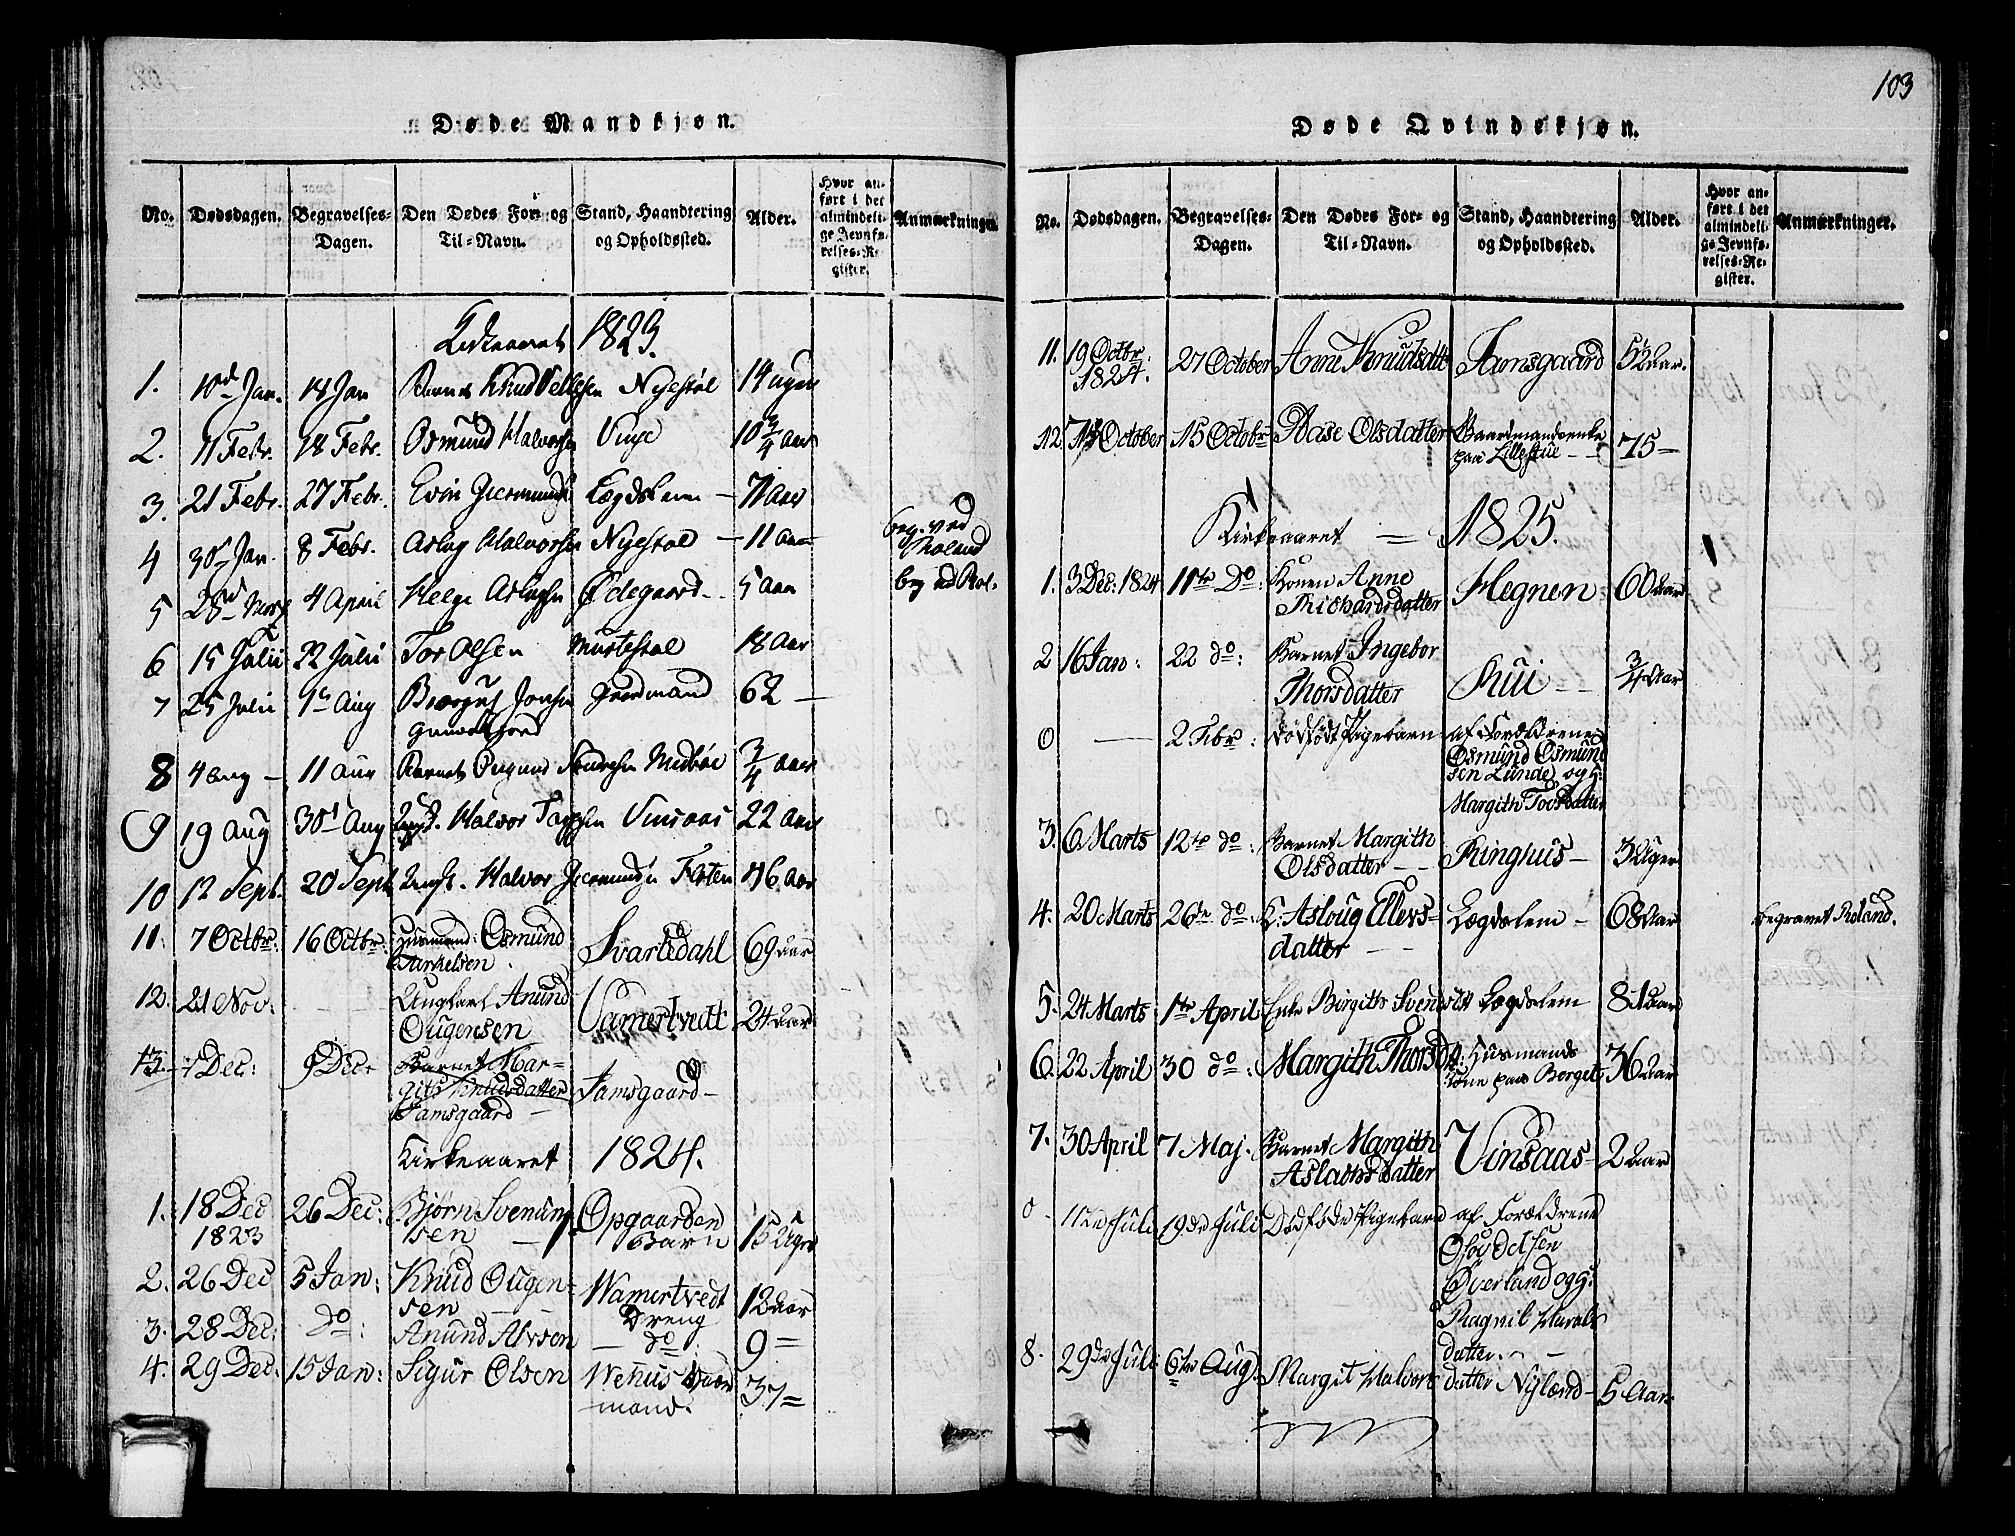 Døde Mandkjøn.
No. Dødsdagen. Begravelses-Dagen. Den Dødes For- og Til-Navn. Stand, Haandtering og Opholdssted. Alder. Hvor anført i det almindelige Jevnførelses-Register. Anmærkninger.
Kirkeaaret 1823.
1. 10d Jan. 14 Jan Barnet Knud Nyestøl 14 uger
2. 11 Febr. 18 Febr. Osmund Halvorsen Vinje 10 3/4 Aar
3. 21 Febr. 27 Febr. Evin Giermunds Lægdslem — 71 Aar
4 30t Jan. 8 Febr. Aslag Halvorsen Nyestøl — 11 Aar beg. ved Moland
5 28d Mart 4 April Helge Aslagsen Ødegaard — 5 Aar beg ved Mol.
6 15 Julii 22 Julii Tor Olsen Mustestøl 18 Aar
7 25 Julii 1te Aug Jonsen Gaardmand 62 —
8 4 Aug — 11 Aug Barnet Midbøe 3/4 Aar
9 19 Aug 30t Aug Ungk. Halvor Vinsaas 22 Aar
10 12 Sept. 20 Sept Ungk. Halvor Giermunds 46 Aar
11. 7 Octbr: 16 Octbr: Husmand: Osmund Tarkelsen. Svartdahl 69 Aar
12. 21 Nov: — Ungkarl Anund Ougensen Vamertvedt 24 Aar
13. 1 Dec: 9 Dec. Barnet Margit Knudsdatter Samsgaard — Samsgaard —
Kirkeaaret 1824.
1. 18 Dec 1823 26 Dec: Bjørn Svenungsen — Opgaarden Barn 15 Uger
2. 26 Dec 5 Jan: Knud Ougensen — Wamertvedt Dreng 12 Aar
3. 28 Dec: do: Anund Alvsen — do: 9 =
4. 29 Dec: 15 Jan: Sigur Olsen Wehus Gaardmand. 37 =
103
Døde Qvindekjøn.
No. Dødsdagen. Begravelses-Dagen. Den Dødes For- og Til-Navn. Stand, Haandtering og Opholdssted. Alder. Hvor anført i det almindelige Jevnførelses-Register. Anmærkninger.
11. 19 Octbr: 1824. 27 October Anne Knudsdatter 5 1/2 Aar.
12. 7 October 15 Octobr Aase Olsdatter Gaardmandsenke paa Lillestue — 75 =
Kirkeaaret = 1825.
1. 3 Dec: 1824 11te Do: Konen Anne Richardsdatter Hegnen 60 Aar
2 16 Jan: 22 do: Barnet Ingebor Thorsdatter Rui — 3/4 Aar
0 — 2 Febr: Dødfødt Pigebarn af Forældrene Osmund Osmundsen Lunde og H: Margith Tovsdatter
3. 6 Marts 12te do: Barnet Margith Olsdatter — Ringhus — 3 Uger
4. 20 Marts 26de do: E: Asloug Ellevsdatter — Lægdslem — 68 Aar begravet Moland.
5. 24 Marts 1te April Enke Birgith Svendsdtt Lægdslem 81 Aar
6. 22 April 30 do: Margith Thorsdtt: Husmandskone paa Borget 36 Aar
7. 30 April 7 Maj. Barnet Margith Aslachsdatter Vinsaas — 2 Aar
0 — 11te Juli 19de Juli Dødfødt Pigebarn af Forældrene Øverland og H: Ragnil Haraldsdatter. —
8. 29de Juli: 6te Aug: Margit Halvorsdatter Nylænd — 5 Aar